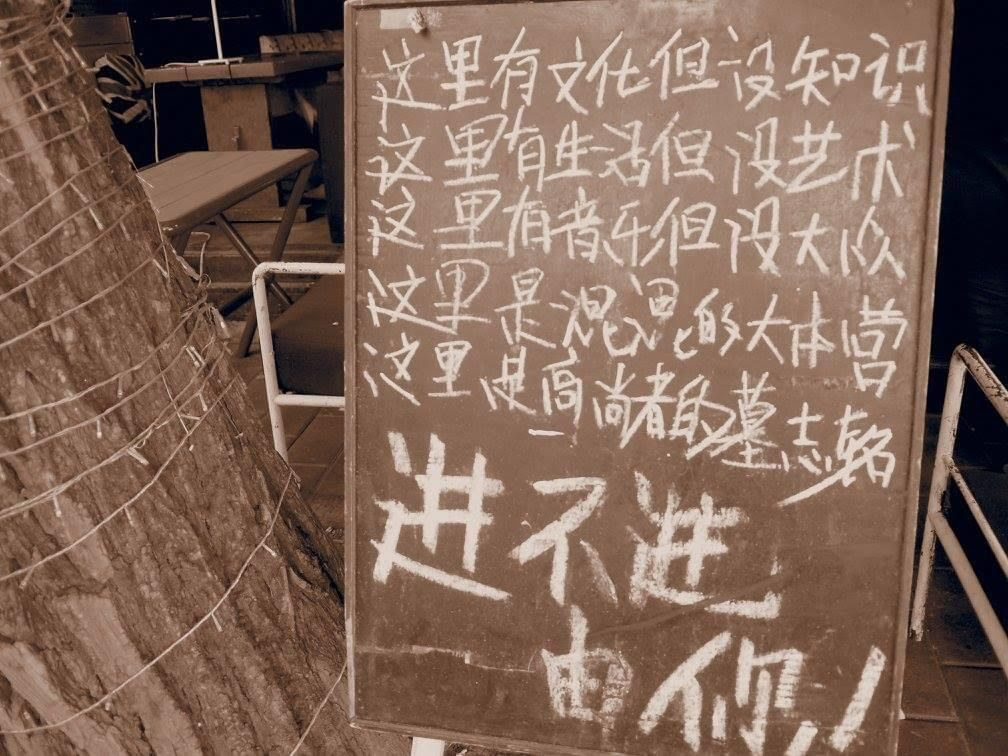 这里有文化但没知识
这里有生活但没艺术
这里有音乐但没大众
这里是混混的大本营
这里是高尚者的墓志铭
进不进
由你！